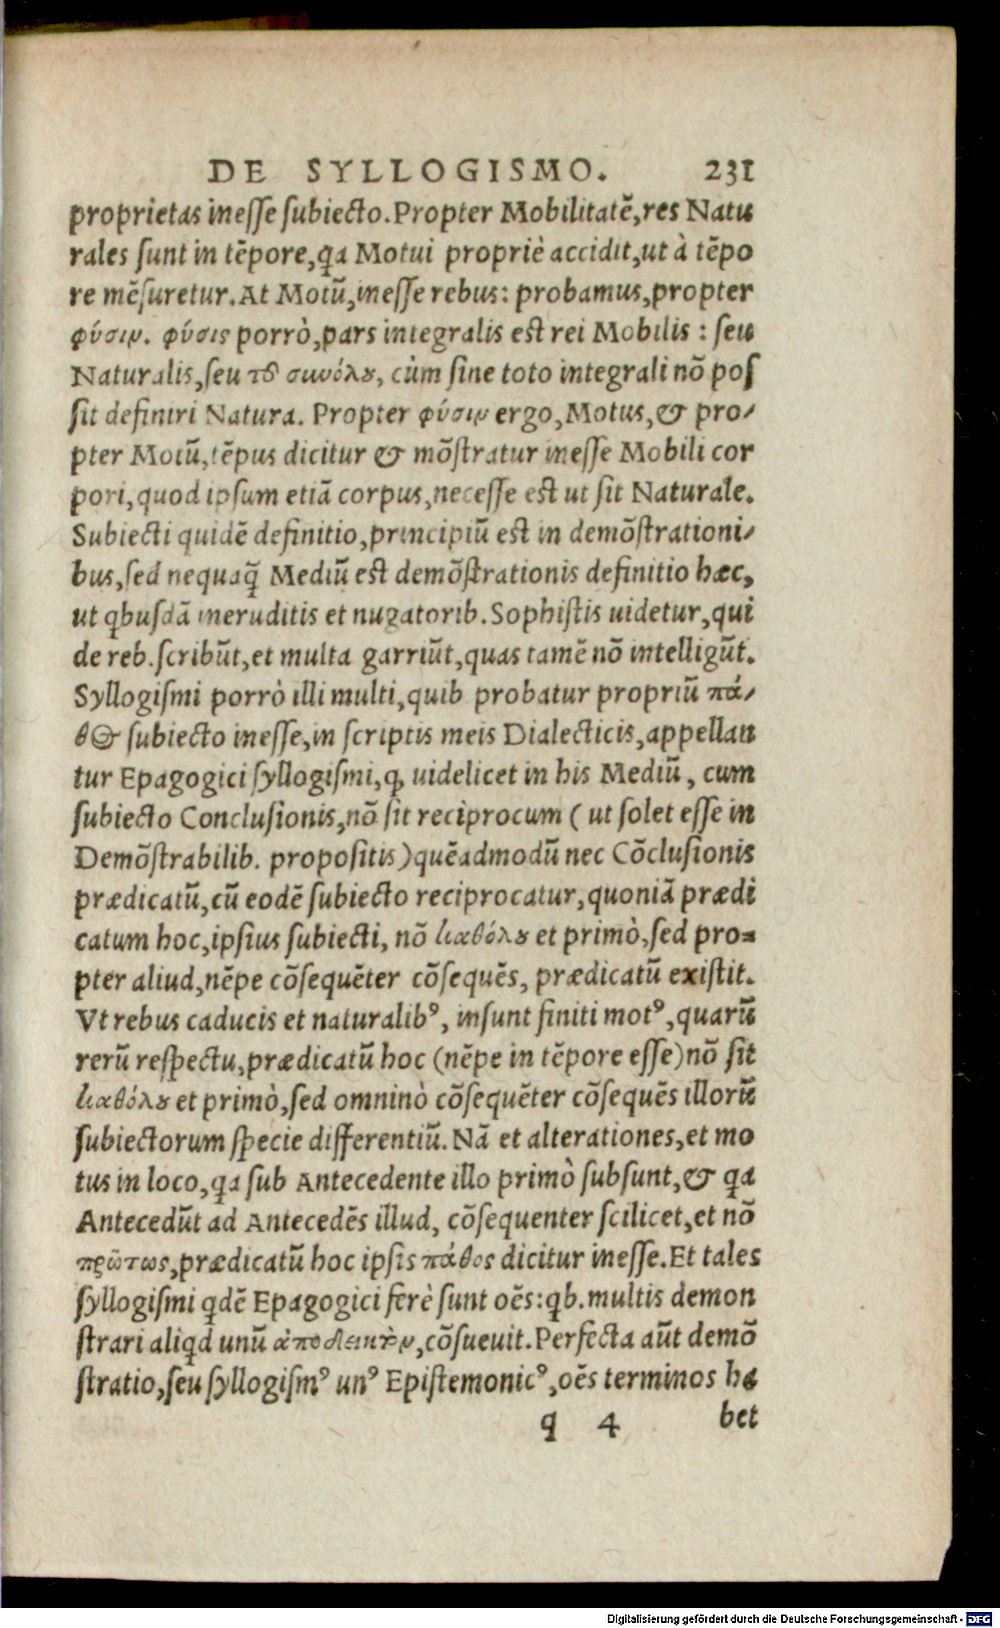 DE SYLLOGISMO. 231
proprietas inesse subiecto. Propter Mobilitatē, res Natu
rales sunt in tēpore, qa Motui propriè accidit, ut à tēpo
re mēsuretur. At Motū, inesse rebus: probamus, propter
φύσιν. φύσις porrò, pars integralis est rei Mobilis: seu
Naturalis, seu τȣ͂ συνόλȣ, cùm sine toto integrali nō pos
sit definiri Natura. Propter φύσιν ergo, Motus, & pro-
pter Motū, tēpus dicitur & mōstratur inesse Mobili cor
pori, quod ipsum etiā corpus, necesse est ut sit Naturale.
Subiecti quidē definitio, principiū est in demōstrationi-
bus, sed nequaq̃ Mediū est demōstrationis definitio hæc,
ut qbusdā ineruditis et nugatorib. Sophistis uidetur, qui
de reb. scribūt, et multa garriūt, quas tamē nō intelligūt.
Syllogismi porrò illi multi, quib probatur propriū πά-
θος subiecto inesse, in scriptis meis Dialecticis, appellan
tur Epagogici syllogismi, ꝙ uidelicet in his Mediū, cum
subiecto Conclusionis, nō sit reciprocum (ut solet esse in
Demōstrabilib. propositis) quēadmodū nec Cōclusionis
prædicatū, cū eodē subiecto reciprocatur, quoniā prædi
catum hoc, ipsius subiecti, nō καθόλȣ et primò, sed pro-
pter aliud, nēpe cōsequēter cōsequēs, prædicatū existit.
Vt rebus caducis et naturalibꝰ, insunt finiti motꝰ, quarū
rerū respectu, prædicatū hoc (nēpe in tēpore esse) nō sit
καθόλȣ et primò, sed omninò cōsequēter cōsequēs illorū
subiectorum specie differentiū. Nā et alterationes, et mo
tus in loco, qa sub Antecedente illo primò subsunt, & qa
Antecedūt ad Antecedēs illud, cōsequenter scilicet, et nō
πρῶτως, prædicatū hoc ipsis πάθος dicitur inesse. Et tales
syllogismi qdē Epagogici ferè sunt oēs: qb. multis demon
strari aliqd unū ἀποδεικτὸν, cōsueuit. Perfecta aūt demō
stratio, seu syllogismꝰ unꝰ Epistemonicꝰ, oēs terminos ha
q 4 bet
Digitalisierung gefördert durch die Deutsche Forschungsgemeinschaft - DFG